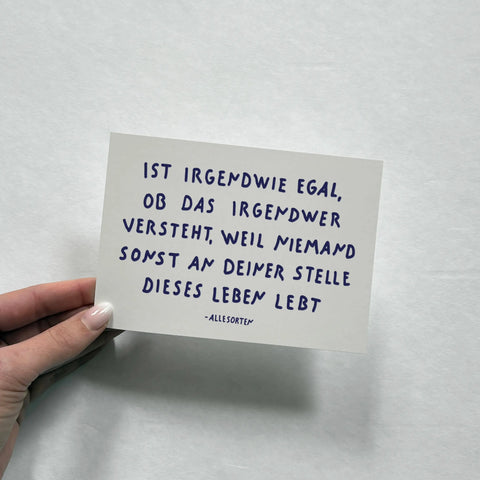 IST IRGENDWIE EGAL,
OB DAS IRGENDWER
VERSTEHT, WEIL NIEMAND
SONST AN DEINER STELLE
DIESES LEBEN LEBT
-ALLESORTEN